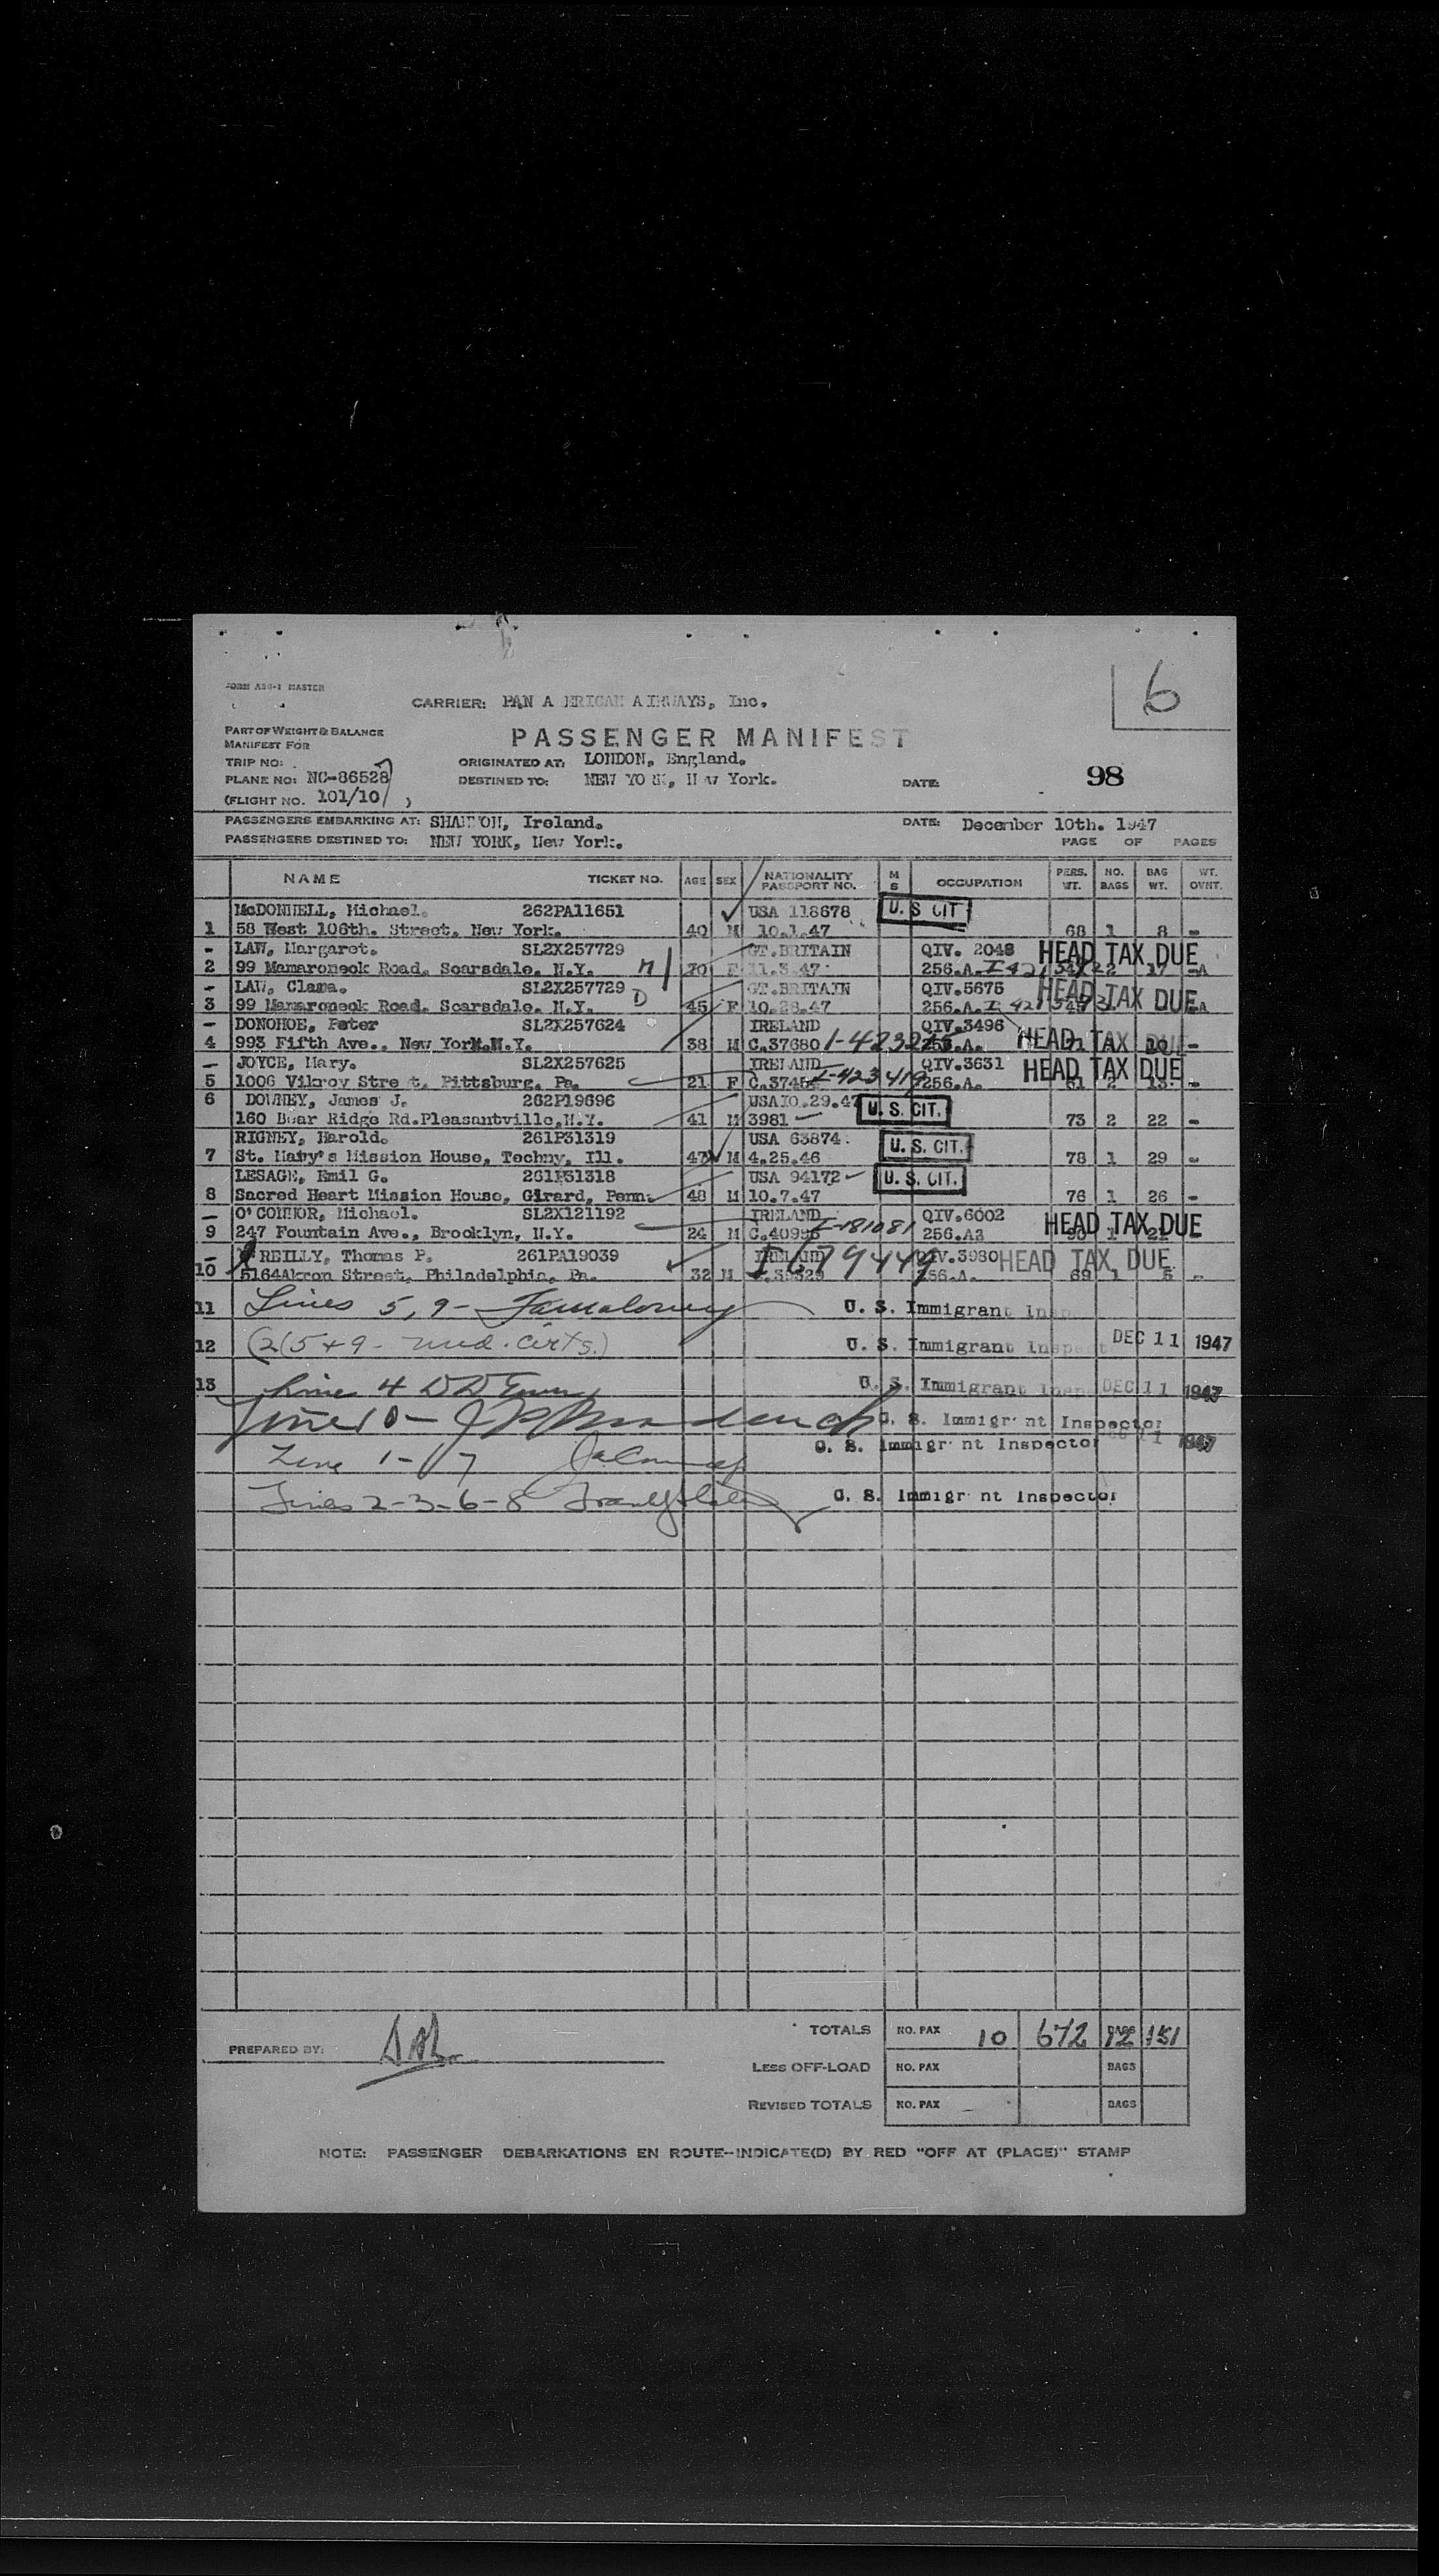 6
FORM ASG-1 MASTER
CARRIER: PAN A ERICAN AIRWAYS, Inc.
PART OF WEIGHT & BALANCE
MANIFEST FOR
PASSENGER MANIFEST
TRIP NO:
ORIGINATED AT: LONDON, England.
PLANE NO: NC-86528
DESTINED TO: NEW YO K, New York.
DATE: 98
(FLIGHT NO. 101/10 )
PASSENGERS EMBARKING AT: SHANNON, Ireland.
DATE: December 10th. 1947
PASSENGERS DESTINED TO: NEW YORK, New York.
PAGE OF PAGES
NAME TICKET NO. AGE SEX NATIONALITY PASSPORT NO. M S OCCUPATION PERS. WT. NO. BAGS BAG WT. WT. OVHT.
McDONNELL, Michael. 262PA11651 USA 118678 U. S CIT
1 58 West 106th. Street, New York. 40 M 10.1.47 68 1 8 -
- LAW, Margaret. SL2X257729 GT.BRITAIN QIV. 2048 HEAD TAX DUE
2 99 Mamaroneck Road, Scarsdale, N.Y. 70 F 11.3.47 256.A. 2 17
- LAW, Clama. SL2X257729 GT.BRITAIN QIV.5675 HEAD TAX DUE
3 99 Mamaroneck Road, Scarsdale, N.Y. D 45 F 10.28.47 256.A.
- DONOHOE, Peter SL2X257624 IRELAND QIV.3496 HEAD TAX DUE
4 993 Fifth Ave., New York.N.Y. 38 M C.37680 256.A. -
- JOYCE, Mary. SL2X257625 IRELAND QIV.3631 HEAD TAX DUE
5 1006 Vilroy Stre t, Pittsburg, Pa. 21 F C.3745 I-423419 256.A. 61 2 13
6 DOWNEY, James J. 262P19696 USA10.29.47 U. S. CIT.
160 Bear Ridge Rd.Pleasantville,N.Y. 41 M 3981 73 2 22 -
RIGNEY, Harold. 261P31319 USA 63874. U. S. CIT.
7 St. Mary's Mission House, Techny, Ill. 47 M 4.25.46 78 1 29 -
LESAGE, Emil G. 261P31318 USA 94172 U. S. CIT.
8 Sacred Heart Mission House, Girard, Penn. 48 M 10.7.47 76 1 26 -
- O'CONNOR, Michael. SL2X121192 IRELAND QIV.6002 HEAD TAX DUE
9 247 Fountain Ave., Brooklyn, N.Y. 24 M C.40996 I-181081 256.A2 1
- REILLY, Thomas P. 261PA19039 IRELAND I 679449 QIV.3980 HEAD TAX DUE
10 5164Akron Street, Philadelphia, Pa. 32 M 256.A. 69 1 5 -
11 Lines 5, 9 - U. S. Immigrant Insp
12 (2(5 + 9 - med. certs.) U. S. Immigrant Inspect DEC 11 1947
13 Line 4 U. S. Immigrant Insp DEC 11 1947
Line 10 - U. S. Immigr nt Inspector
Line 1 - 7 U. S. Immigr nt Inspector 11 1947
Lines 2-3-6-8 U. S. Immigr nt Inspector
TOTALS NO. PAX 10 672 BAGS 12 151
PREPARED BY:
LESS OFF-LOAD NO. PAX BAGS
REVISED TOTALS NO. PAX BAGS
NOTE: PASSENGER DEBARKATIONS EN ROUTE--INDICATE(D) BY RED "OFF AT (PLACE)" STAMP